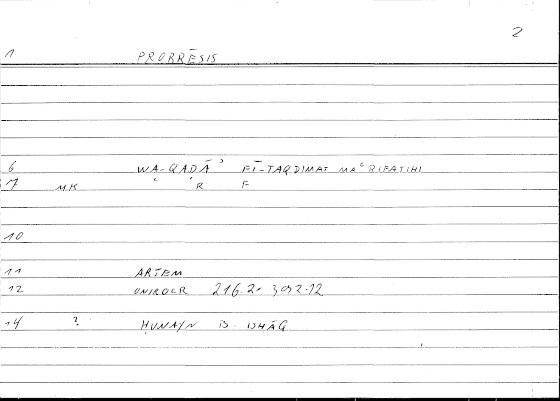 2
1 PRORRĒSIS
6 WA-QAḌĀʾ FĪ-TAQDIMAT MAʿRIFATIHI
7 MK ʿ ʿR F
10
11 ARTEM
12 216.2-
14 ? ḤUNAYN B. ISḤĀQ